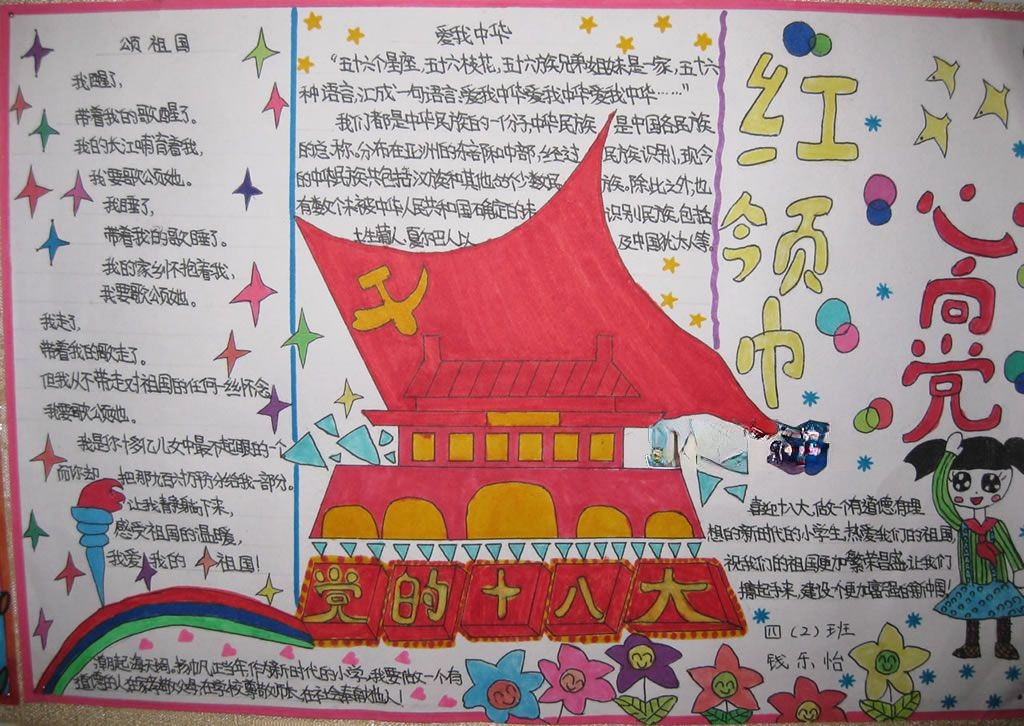 颂祖国
我醒了,
带着我的歌醒了。
我的长江哺育着我,
我要歌颂她。
我睡了,
带着我的歌睡了。
我的家乡怀抱着我,
我要歌颂她。
我走了,
带着我的歌走了。
但我从不带走对祖国的任何一丝怀念
我要歌颂她。
我是你十多亿儿女中最不起眼的一个
而你却 把那九百六十万平方分给我一部分。
让我静静躺下来,
感受祖国的温暖,
我爱 我的 祖国!
爱我中华
“五十六个星座,五十六枝花,五十六族兄弟姐妹是一家,五十六
种语言,汇成一句话语:爱我中华爱我中华爱我中华……”
我们都是中华民族的一份子,中华民族 是中国各民族
的总称。分布在亚洲的东部和中部,经过 民族识别,现今
的中华民族共包括汉族和其他55个少数民 族。除此之外,也
有数个未被中华人民共和国确定的未 识别民族,包括
人、夏尔巴人以 及中国犹太人等。
红领巾
心向党
党的十八大
喜迎十八大,做一个有道德有理
想的新时代的小学生,热爱我们的祖国,
祝我们的祖国更加繁荣昌盛,让我们
携起手来,建设一个更加富强的新中国!
四(2)班
钱乐怡
潮起海天阔,扬帆正当年,作新时代的小学,我要做一个有
道德的人在家孝敬父母在学校尊敬师长,在社会奉献他人!